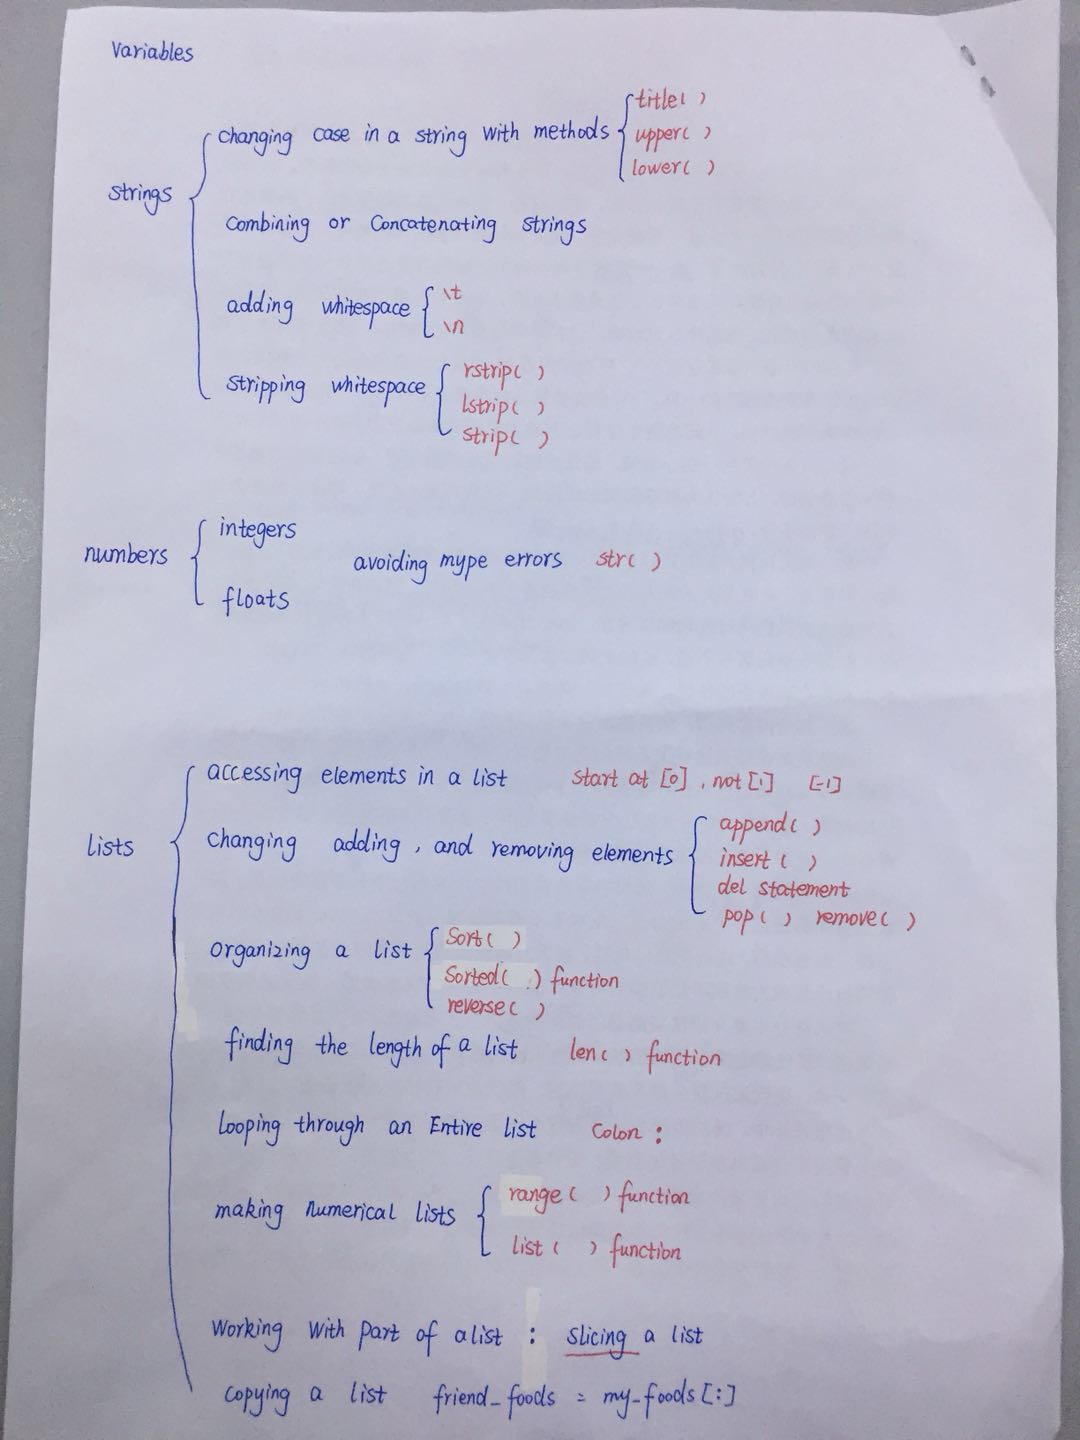 Variables
changing case in a string with methods title( )
upper( )
lower( )
strings
Combining or Concatenating strings
adding whitespace \t
\n
stripping whitespace rstrip( )
lstrip( )
strip( )
numbers integers
avoiding mype errors str( )
floats
accessing elements in a list start at [0] , not [1] [-1]
lists changing adding , and removing elements append( )
insert ( )
del statement
pop( ) remove( )
organizing a list Sort( )
Sorted( ) function
reverse( )
finding the length of a list len( ) function
Looping through an Entire list Colon :
making numerical lists range( ) function
list ( ) function
Working with part of a list : Slicing a list
copying a list friend_foods = my_foods[:]